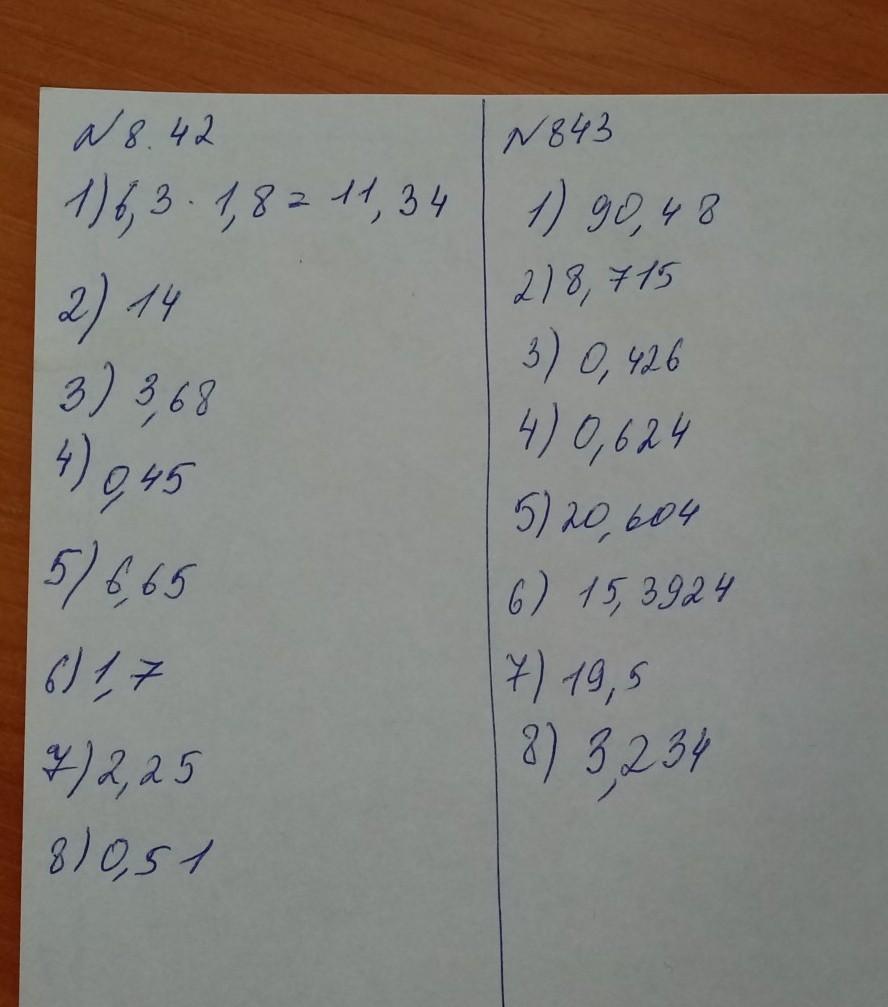 № 8.42
1) 6,3 · 1,8 = 11,34
2) 14
3) 3,68
4) 0,45
5) 6,65
6) 1,7
7) 2,25
8) 0,51
№ 843
1) 90,48
2) 8,715
3) 0,426
4) 0,624
5) 20,604
6) 15,3924
7) 19,5
8) 3,234